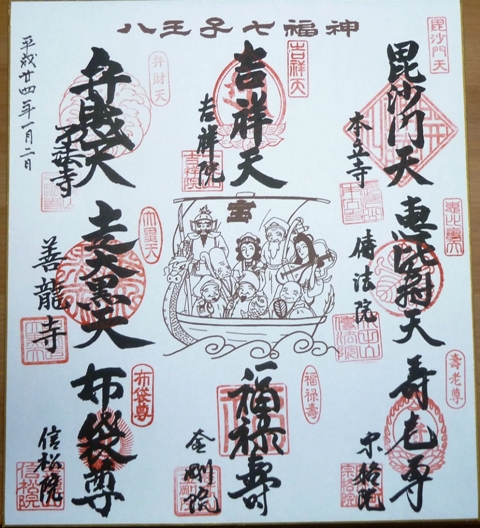 八王子七福神
毘沙門天
毘沙門天
本立寺
吉祥天
吉祥天
吉祥院
弁財天
弁財天
了法寺
平成廿四年一月二日
恵比寿天
恵比寿天
傳法院
宝
大黒天
走大黒天
善龍寺
壽老尊
寿老尊
宗格院
福禄壽
福禄壽
金剛院
布袋尊
布袋尊
信松院